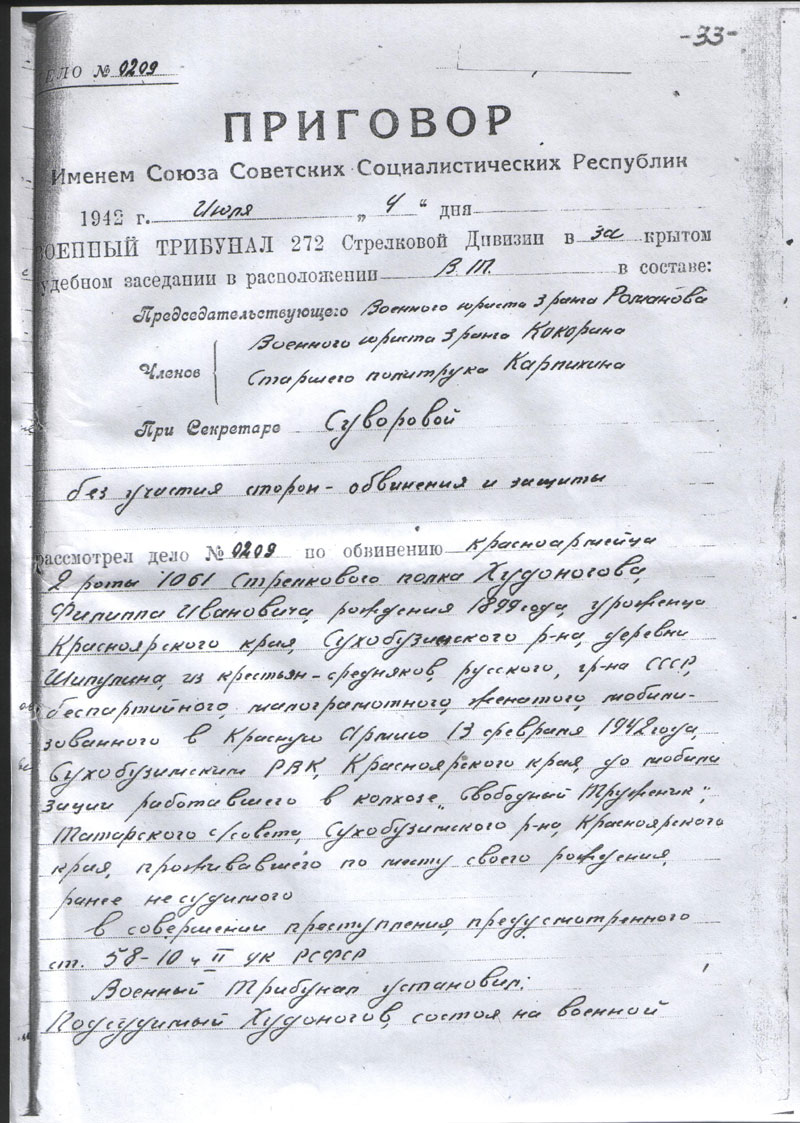 -33-
ЕЛО № 0209
ПРИГОВОР
Именем Союза Советских Социалистических Республик
1942 г. Июля „ 4 “ дня
ВОЕННЫЙ ТРИБУНАЛ 272 Стрелковой Дивизии в за крытом
удебном заседании в расположении В.Т. в составе:
Председательствующего Военного юриста 3 ранга Романова
Военного юриста 3 ранга Кокорина
Членов
Старшего политрука Карпихина
При Секретаре Суворовой
без участия сторон - обвинения и защиты
рассмотрел дело № 0209 по обвинению красноармейца
2 роты 1061 Стрелкового полка Худоногова,
Филиппа Ивановича, рождения 1899 года, урожен­ца
Красноярского края, Сухобузимского р-на, деревни
Шипулина, из крестьян-средняков, русского, гр-на СССР,
беспартийного, малограмотного, женатого, мобили-
зованного в Красную Армию 13 февраля 1942 года,
Сухобузимским РВК, Красноярского края, до мобили
зации работавшего в колхозе „Свободный Труженик",
Татарского с/совета, Сухобузимского р-на, Красноярского
края, проживавшего по месту своего рождения,
ранее не судимого
в совершении преступления, предусмотренного
ст. 58-10 ч II УК РСФСР
Военный Трибунал установил:
Подсудимый Худоногов, состоя на военной